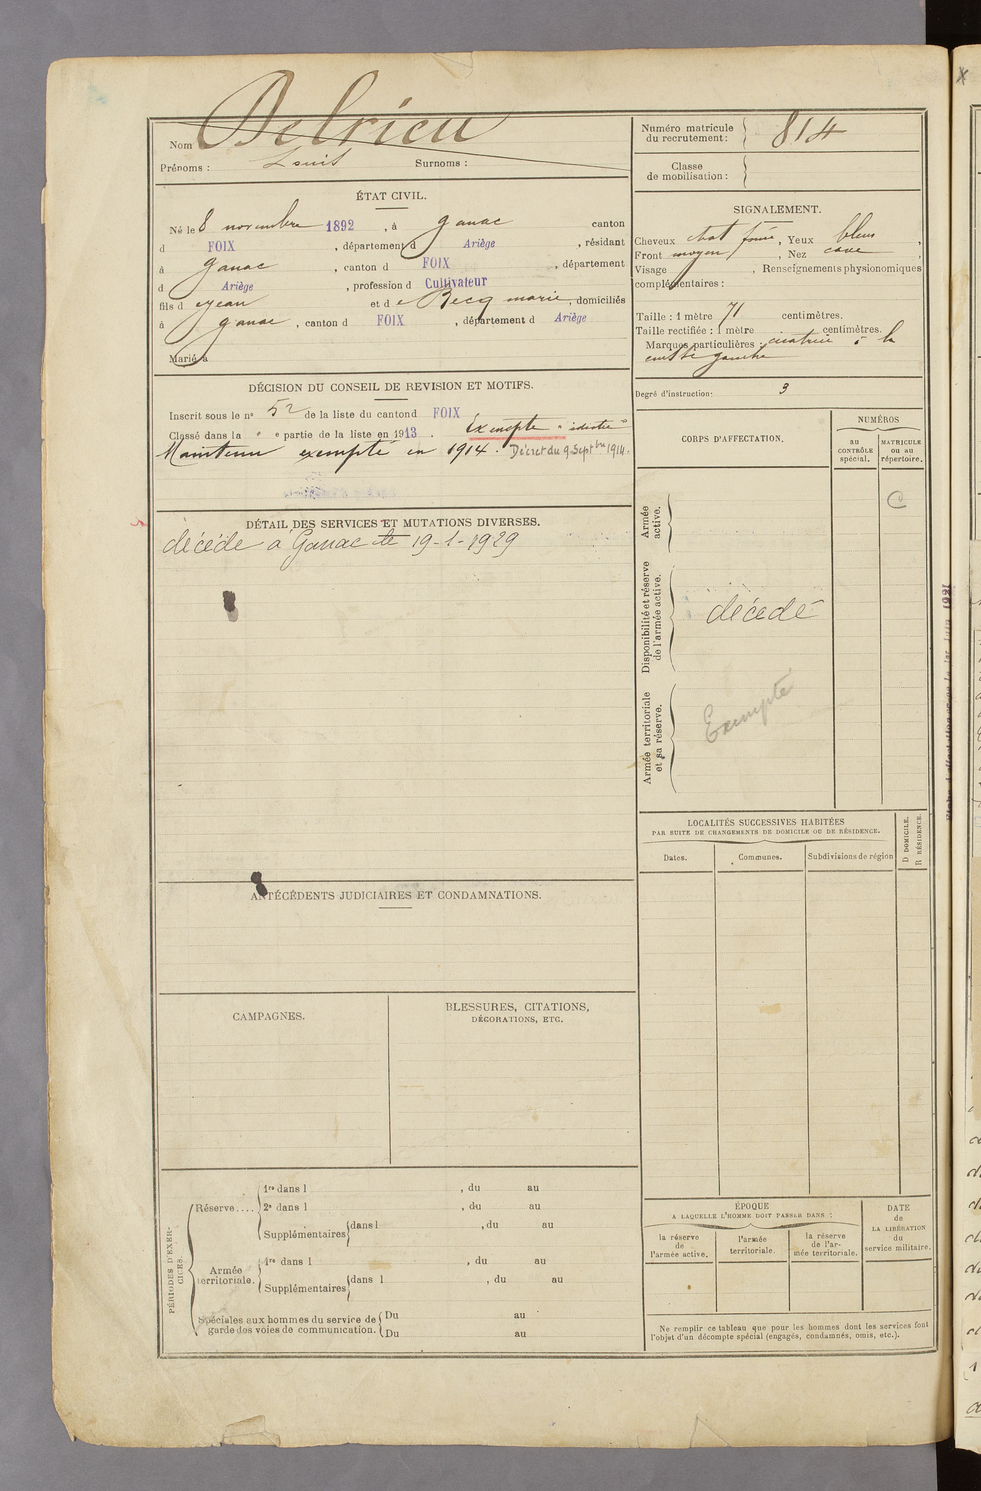 Nom Delrieu
Prénoms : Louis Surnoms :
Numéro matricule du recrutement : 814
Classe de mobilisation :
ÉTAT CIVIL.
Né le 8 novembre 1892, à Ganac canton
d FOIX, département d Ariège, résidant
à Ganac, canton d FOIX, département
d Ariège, profession d Cultivateur
fils d Jean et d e Becq marie, domiciliés
à Ganac, canton d FOIX, département d Ariège
Marié à
SIGNALEMENT.
Cheveux chat foncé, Yeux bleus,
Front moyen, Nez cave,
Visage , Renseignements physionomiques
complémentaires :
Taille : 1 mètre 71 centimètres.
Taille rectifiée : 1 mètre centimètres.
Marques particulières : cicatrice à la
cuisse gauche
Degré d'instruction : 3
DÉCISION DU CONSEIL DE REVISION ET MOTIFS.
Inscrit sous le nº 52 de la liste du canton d FOIX
Classé dans la " e partie de la liste en 1913. Exempté "idiotie"
Maintenu exempté en 1914. Décret du 9 Septbre 1914.
DÉTAIL DES SERVICES ET MUTATIONS DIVERSES.
décédé à Ganac le 19-1-1929
CORPS D'AFFECTATION.
NUMÉROS
au CONTRÔLE spécial.
MATRICULE ou au répertoire.
Armée active.
C
Disponibilité et réserve de l'armée active.
décédé
Armée territoriale et sa réserve.
Exempté
LOCALITÉS SUCCESSIVES HABITÉES
PAR SUITE DE CHANGEMENTS DE DOMICILE OU DE RÉSIDENCE.
Dates. Communes. Subdivisions de région
D DOMICILE.
R RÉSIDENCE.
ANTÉCÉDENTS JUDICIAIRES ET CONDAMNATIONS.
CAMPAGNES.
BLESSURES, CITATIONS,
DÉCORATIONS, ETC.
PÉRIODES D'EXERCICES.
Réserve....
1re dans l , du au
2e dans l , du au
Supplémentaires dans l , du au
Armée territoriale.
1re dans l , du au
Supplémentaires dans l , du au
Spéciales aux hommes du service de
garde des voies de communication.
Du au
Du au
ÉPOQUE
A LAQUELLE L'HOMME DOIT PASSER DANS :
la réserve de l'armée active.
l'armée territoriale.
la réserve de l'armée territoriale.
DATE de LA LIBÉRATION du service militaire.
Ne remplir ce tableau que pour les hommes dont les services font
l'objet d'un décompte spécial (engagés, condamnés, omis, etc.).